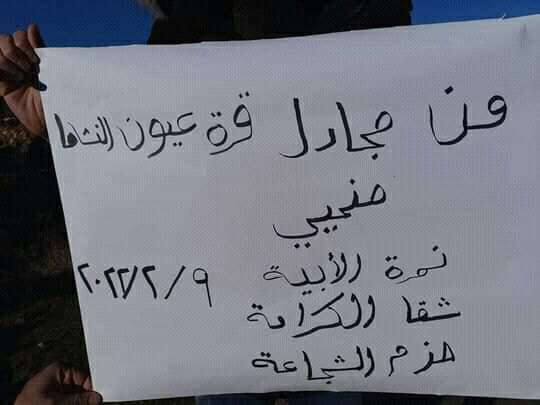 من مجادل قرة عيون النشاما
منحيي
نمرة الأبية ٢٠٢٢/٢/٩
شقا الكرامة
حزم الشجاعة